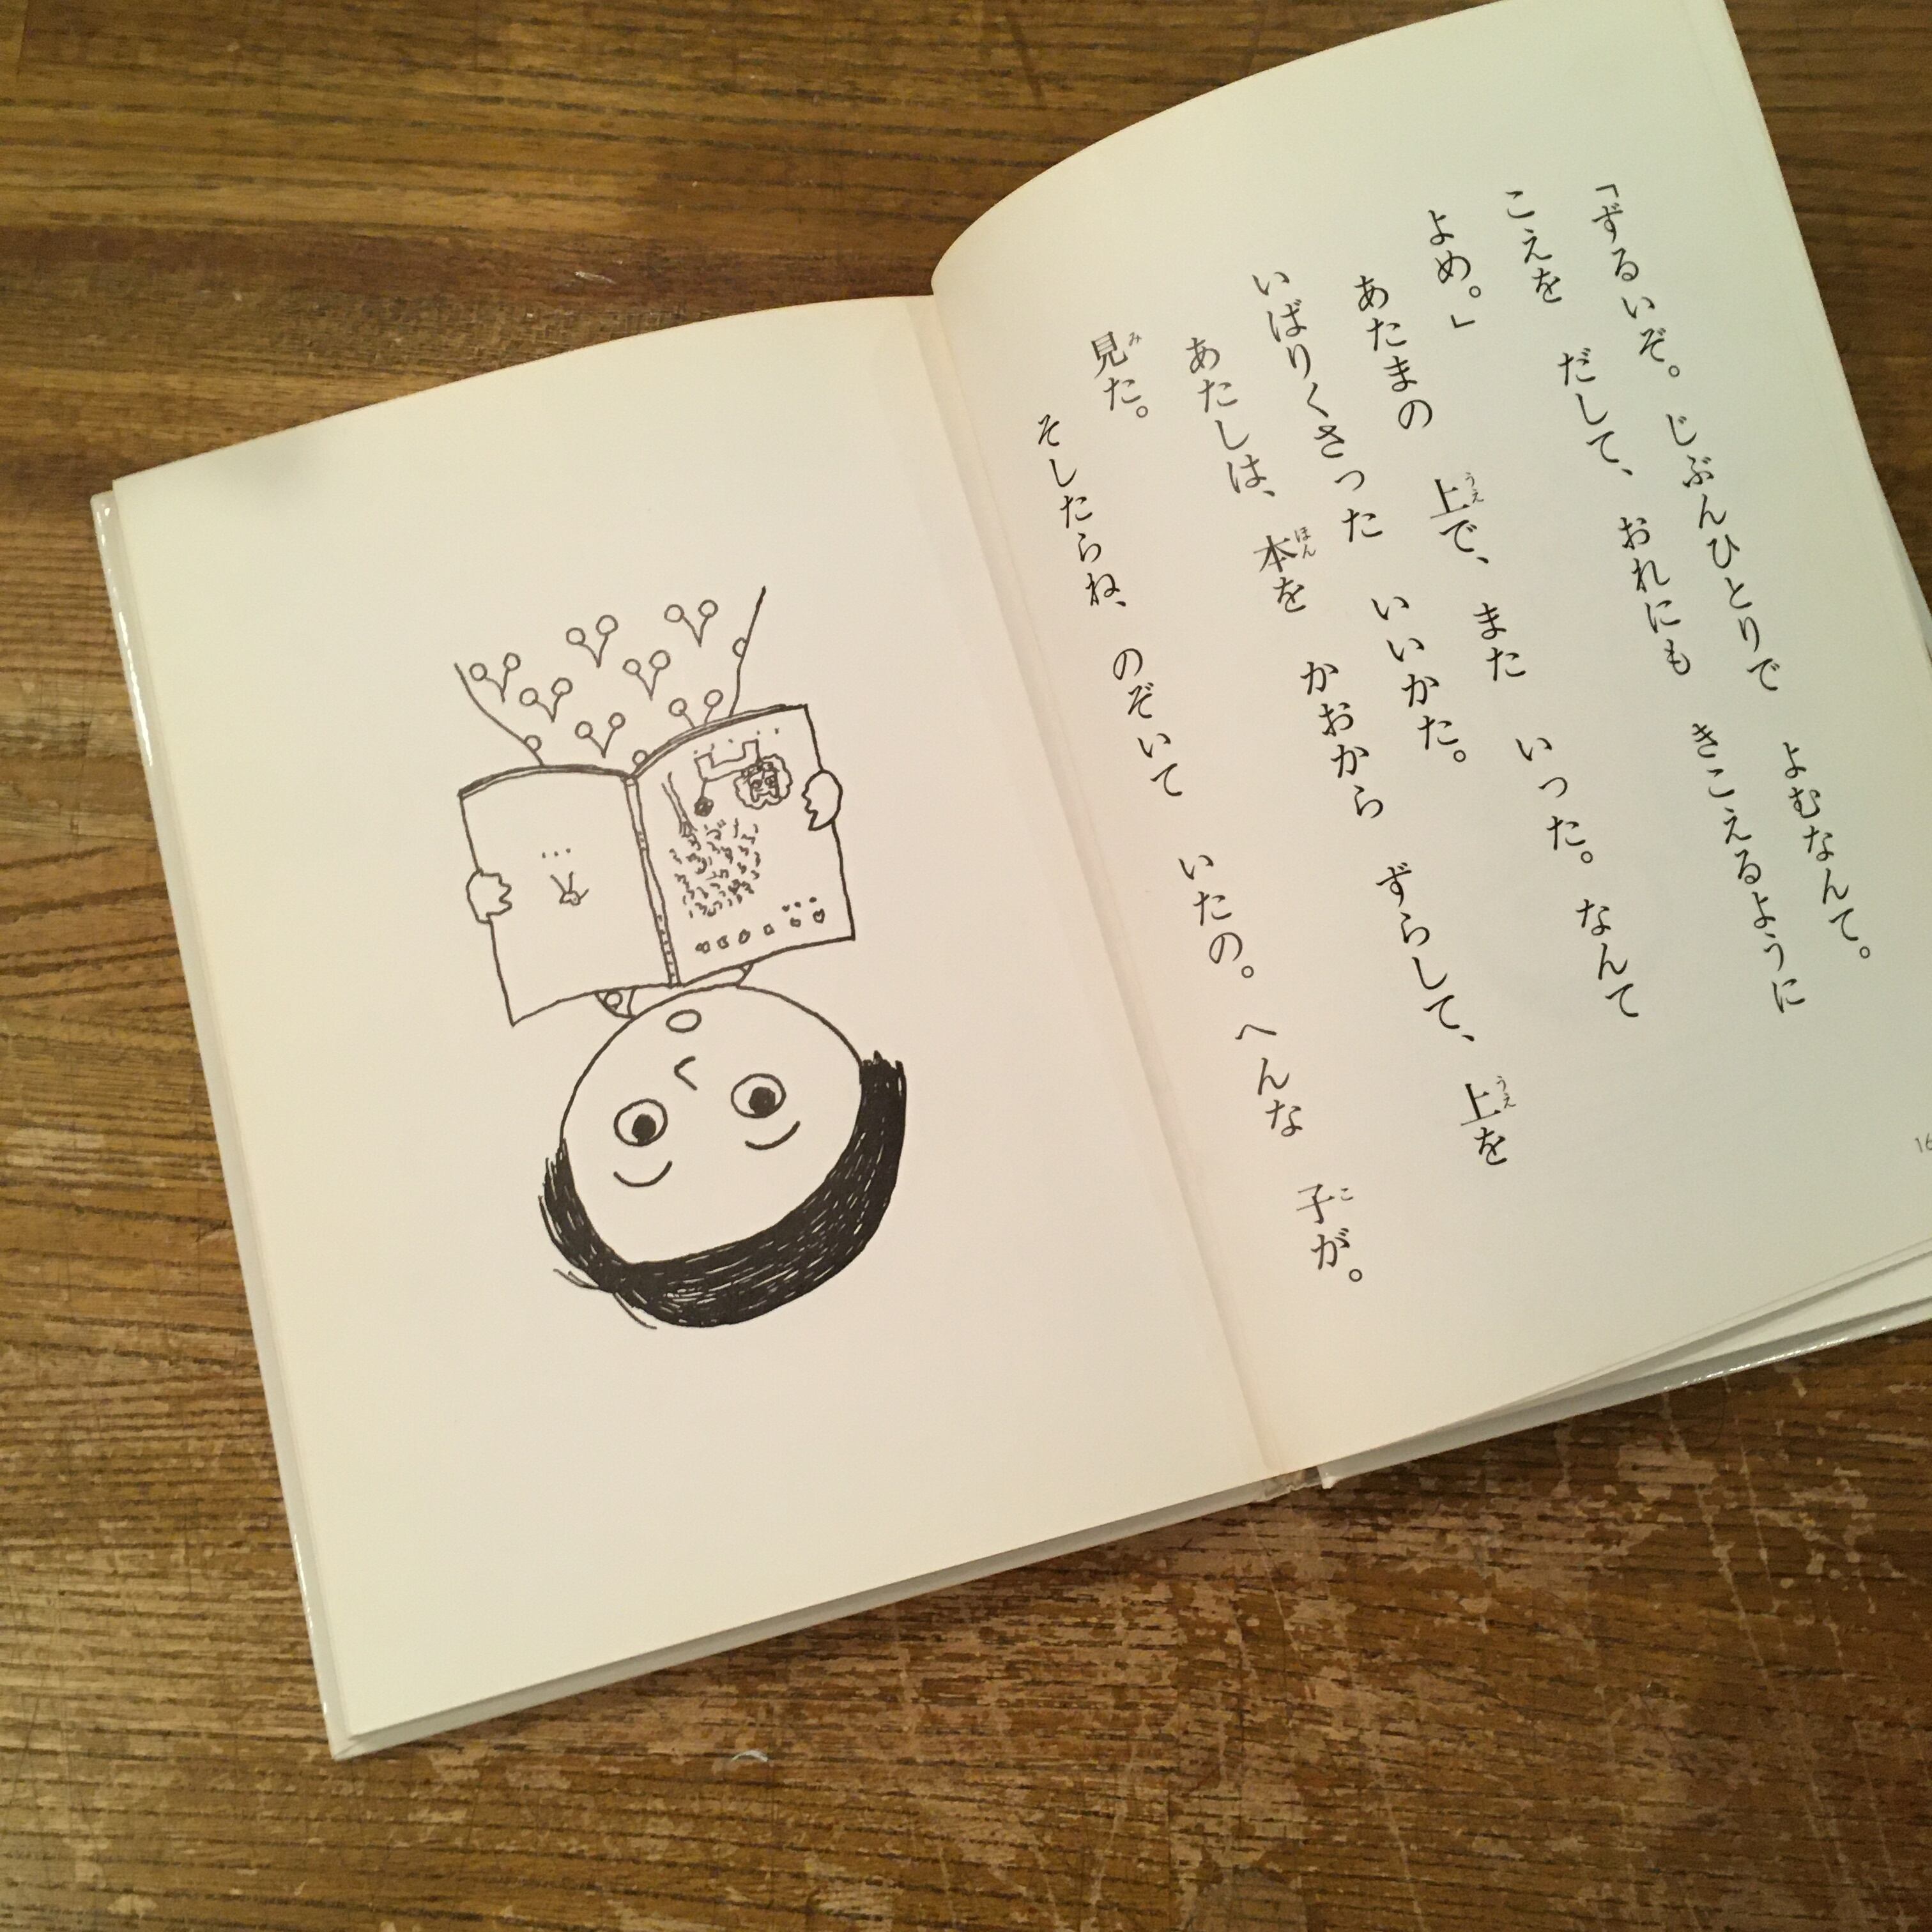 「ずるいぞ。じぶんひとりで よむなんて。
こえを だして、おれにも きこえるように
よめ。」
あたまの 上で、また いった。なんて
いばりくさった いいかた。
あたしは、本を かおから ずらして、上を
見た。
そしたらね、のぞいて いたの。へんな 子が。